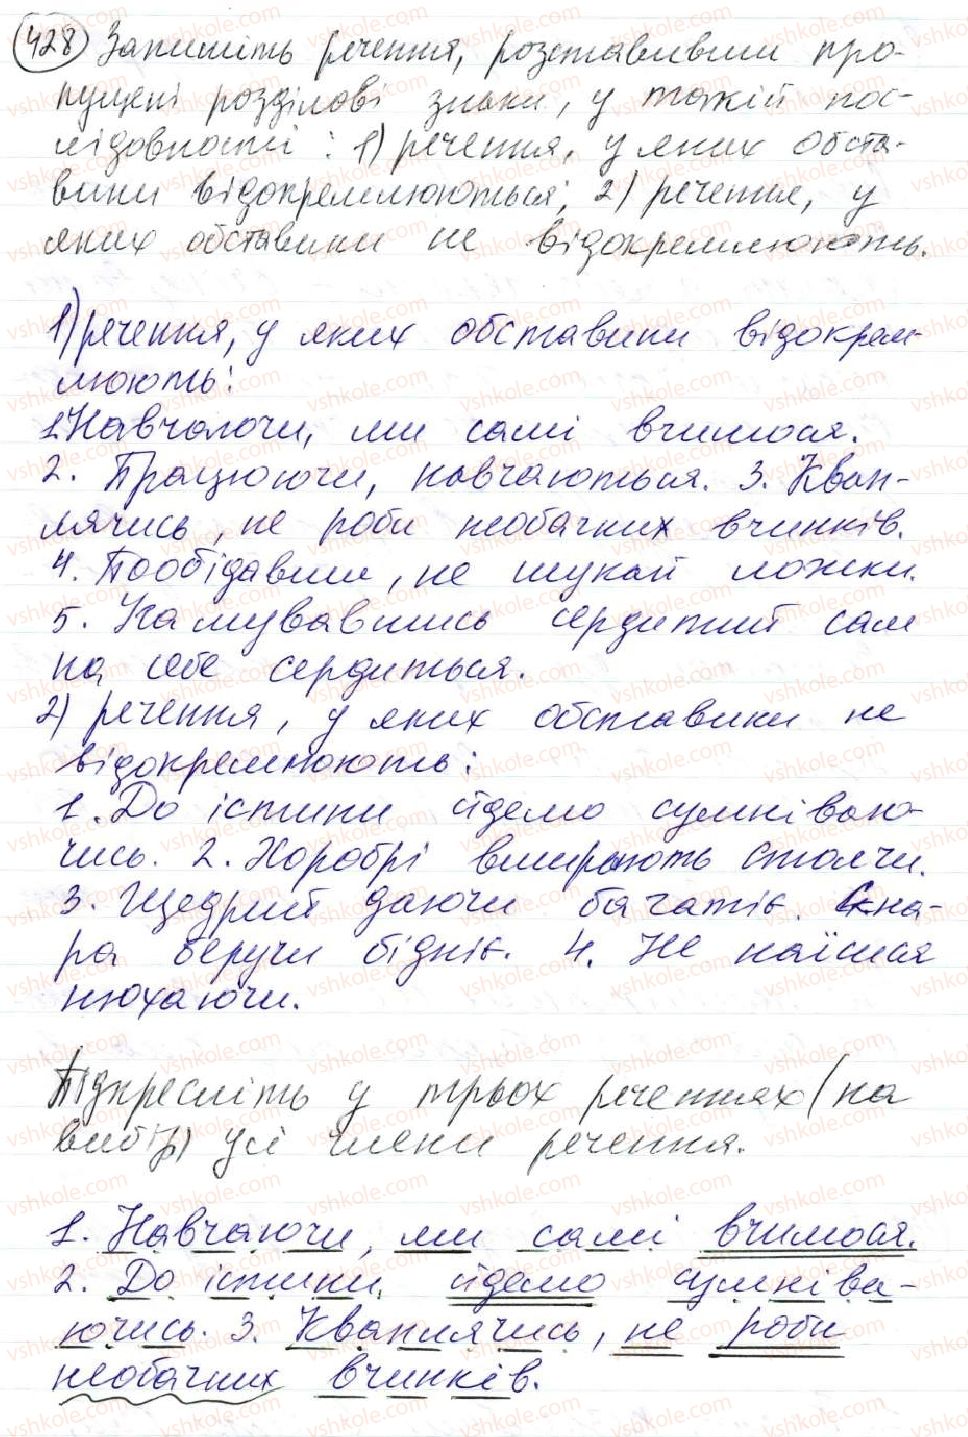 428 Запишіть речення, розставивши про-
пущені розділові знаки, у такій пос-
лідовності : 1) речення, у яких обста-
вини відокремлюються; 2) речення, у
яких обставини не відокремлюють.
1) речення, у яких обставини відокрем-
люють:
1. Навчаючи, ми самі вчимося.
2. Працюючи, навчаються. 3. Квап-
лячись, не роби необачних вчинків.
4. Пообідавши, не шукай ложки.
5. Угамувавшись сердитий сам
на себе сердиться.
2) речення, у яких обставини не
відокремлюють:
1. До істини йдемо сумніваю-
чись. 2. Хоробрі вмирають стоячи.
3. Щедрий даючи багатіє. Скна-
ра беручи бідніє. 4. Не наїшся
нюхаючи.
Підкресліть у трьох реченнях (на
вибір) усі члени речення.
1. Навчаючи, ми самі вчимося.
2. До істини йдемо сумніва-
ючись. 3. Кваплячись, не роби
необачних вчинків.